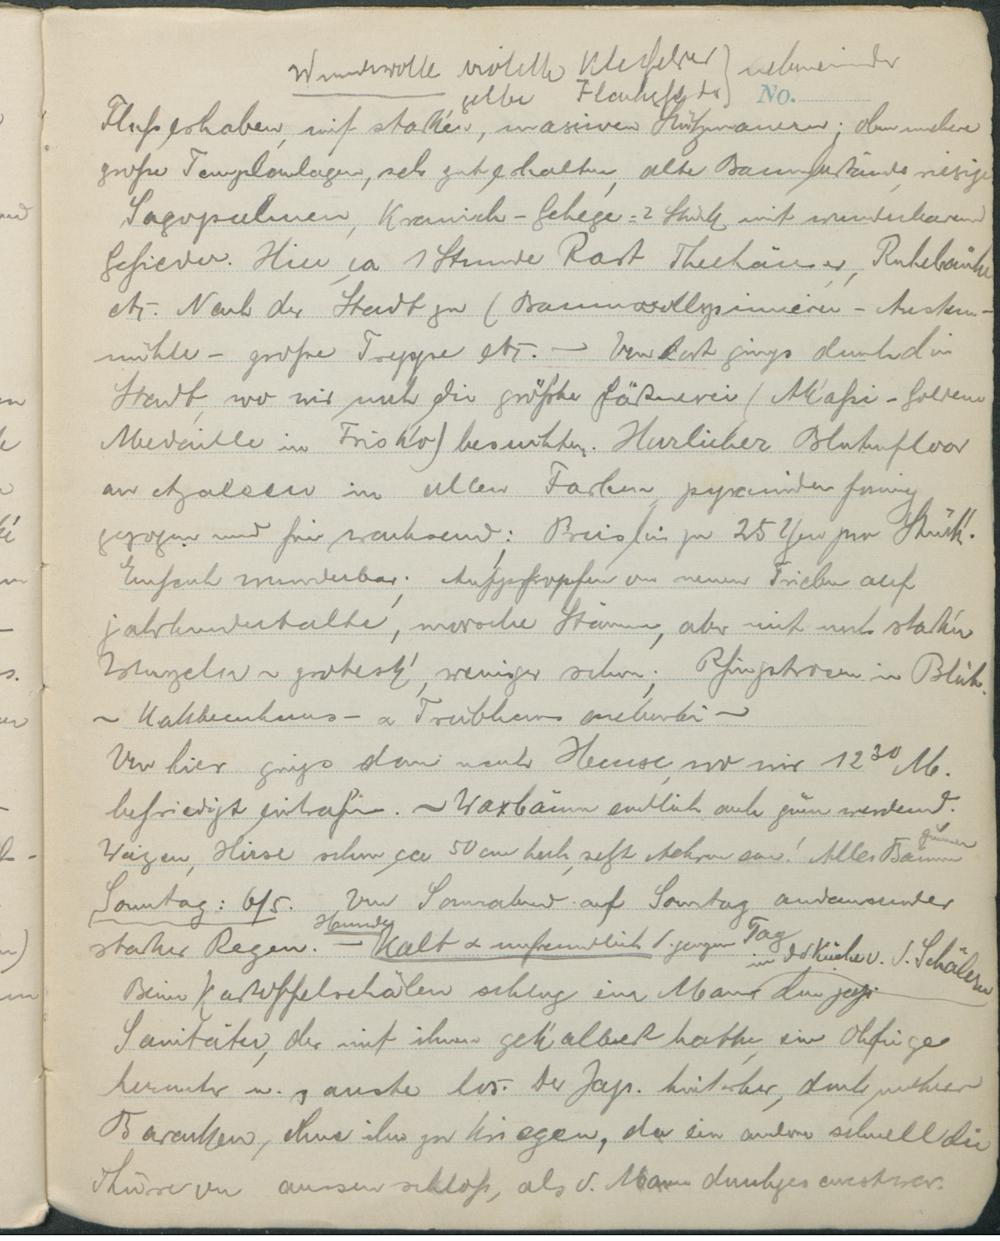 Wundervolle violette Kleefelder } nebeneinander
gelbe Flachsfelder } No.
Fluß erhaben, auf starken, massiven Stützmauern; oben mehrere
große Tempelanlagen, sehr gut erhalten, alte Baumbestände, riesige
Sagopalmen, Kranich-Gehege = 2 Stück mit wunderbarem
Gefieder. Hier ca 1 Stunde Rast Theehäuser, Ruhebänke
etz. Nach der Stadt zu (Baumwollspinnerei -
mühle - große Treppe etz. - Von dort gings durch die
Stadt, wo wir noch die größte Gärtnerei (Akashi - Goldene
Medaille in Frisko) besuchten. Herrlicher Blütenfloor
an Azaleen in allen Farben, pyramidenförmig
gezogen und frei wachsend; Preis bis zu 25 Yen pro Stück.
Einfach wunderbar; Aufpfropfen von neuen Trieben auf
jahrhundertalte, morsche Stämme, aber mit noch starken
Wurzeln ~ grotesk, weniger schön; Pfingstrosen in Blüte.
~ Kakteenhaus - & Treibhaus ~
Von hier gings dann nach Hause, wo wir 12 30 M.
befriedigt eintrafen. ~ Waxbäume endlich auch grün werdend.
Weizen, Hirse schon ca 50 cm hoch, setzt Aehren an! Alles Bäume grünen
Sonntag: 6/5. Von Sonnabend auf Sonntag andauernder
starker Regen. - Kalt & unfreundlich d. ganzen Tag
in der Küche v. d. Schälern
Beim Kartoffelschälen schlug ein Mann dem jap.
Sanitäter, der mit ihnen gekalbert hatte, eine Ohrfeige
herunter u. sauste los. Der Jap. hinterher, durch mehrere
Baracken, ohne ihn zu kriegen, da ein anderer schnell die
Thüre von aussen schloß, als d. Mann durchgesaust war.